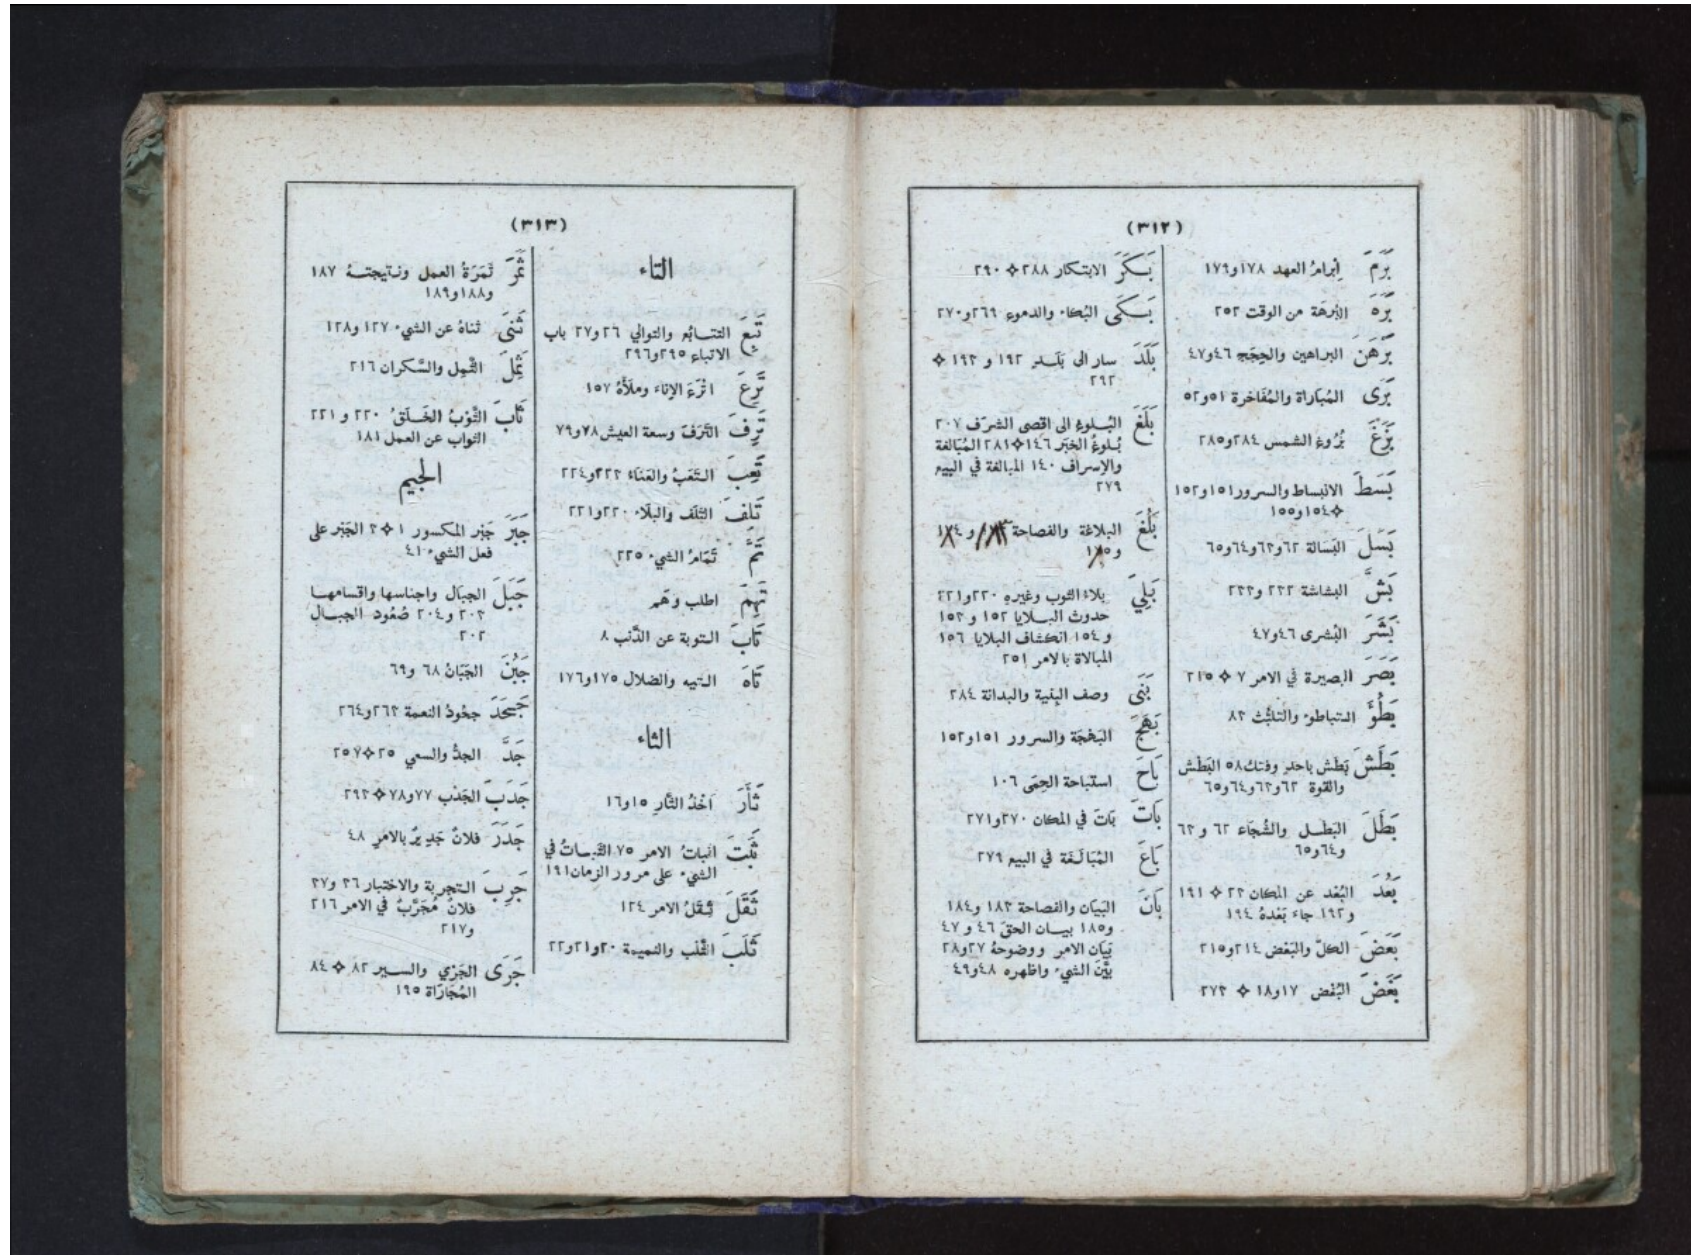 (٣١٢)
بَرَمَ إبرامُ العهد ١٧٨و١٧٩
بَرَهَ البُرهَة من الوقت ٢٥٢
بَرْهَنَ البراهين والحِجَج ٤٦و٤٧
بَرَى المُباراة والمُفَاخرة ٥١و٥٢
بَزَغَ بُزُوغ الشمس ٢٨٤و٢٨٥
بَسَطَ الانبساط والسرور ١٥١و١٥٢
✧١٥٤و١٥٥
بَسَلَ البَسَالة ٦٢و٦٣و٦٤و٦٥
بَشَّ البشاشة ٢٣٢ و٢٣٣
بَشَّرَ البُشرى ٤٦و٤٧
بَصَرَ البصيرة في الامر ٧ ✧ ٢١٥
بَطُؤَ التباطوء والتلبُّث ٨٣
بَطَشَ بَطَش باحدٍ وفتك ٥٨ البَطْش
والقوة ٦٢و٦٣و٦٤و٦٥
بَطَلَ البَطَل والشُجَاع ٦٢ و ٦٣
و٦٤و٦٥
بَعُدَ البُعْد عن المكان ٢٣ ✧ ١٩١
و١٩٢ جاءَ بَعْدهُ ١٩٤
بَعَضَ الكلّ والبَعْض ٢١٤و٢١٥
بَغَضَ البُغْض ١٧و١٨ ✧ ٢٧٣
بَكَرَ الابتكار ٢٨٨ ✧ ٢٩٠
بَكَى البُكاء والدموع ٢٦٩و٢٧٠
بَلَدَ سار الى بَلَدٍ ١٩٢ و ١٩٣ ✧
٢٩٢
بَلَغَ البُلوغ الى اقصى الشرَف ٢٠٧
بُلوغُ الخبَر ١٤٦✧٢٨١ المُبَالغة
والإسراف ١٤٠ المبالغة في البيع
٢٧٩
بَلُغَ البلاغة والفصاحة ١٨٣ و ١٨٤
و١٨٥
بَلِيَ بلاءُ الثوب وغيرهِ ٢٢٠و٢٢١
حدوث البلايا ١٥٢ و ١٥٣
و ١٥٤ انكشاف البلايا ١٥٦
المبالاة بالامر ٢٥١
بَنَى وصف البِنية والبدانة ٢٨٤
بَهَجَ البَهْجَة والسرور ١٥١و١٥٢
بَاحَ استباحة الحِمَى ١٠٦
بَاتَ بَاتَ في المكان ٢٧٠و٢٧١
بَاعَ المُبَالَغَة في البيع ٢٧٩
بَانَ البَيَان والفصاحة ١٨٣ و١٨٤
و١٨٥ بيان الحقّ ٤٦ و ٤٧
بَيَان الامر ووضوحهُ ٢٧و٢٨
بيَّنَ الشيء واظهره ٤٨و٤٩
(٣١٣)
التاء
تَبِعَ التتابُع والتوالي ٢٦ و٢٧ باب
الاتباع ٢٩٥و٢٩٦
تَرِعَ اتْرَعَ الإناء وملَأَهُ ١٥٧
تَرِفَ التَّرَفُ وسعة العيش ٧٨و٧٩
تَعِبَ التَّعَبُ والعَنَاءُ ٢٢٣و٢٢٤
تَلِفَ التَّلَف والبلَاء ٢٢٠و٢٢١
تَمَّ تَمَامُ الشيء ٢٢٥
تَهِمَ اطلب وَهَم
تَابَ التوبة عن الذَّنب ٨
تَاهَ التيه والضلال ١٧٥و١٧٦
الثاء
ثَأَرَ أَخْذُ الثَّأر ١٥و١٦
ثَبَتَ اثباتُ الامر ٧٥ الثَّبَاتُ في
الشيء على مرور الزمان ١٩١
ثَقَّلَ ثِقَلُ الامر ١٢٤
ثَلَبَ الثَّلْب والنميمة ٢٠و٢١و٢٢
ثَمَرَ ثَمَرَةُ العمل ونتيجتهُ ١٨٧
و١٨٨و١٨٩
ثَنَى ثناهُ عن الشيء ١٢٧ و١٢٨
ثَمِلَ الثَّمِل والسَّكران ٢١٦
ثَابَ الثَّوْبُ الخَلَقُ ٢٢٠ و ٢٢١
الثواب عن العمل ١٨١
الجيم
جَبَرَ جَبْر المكسور ١✧٢ الجَبْر على
فعل الشيء ٤١
جَبَلَ الجبَال واجناسها واقسامها
٢٠٣ و٢٠٤ صُعُود الجبال
٢٠٢
جَبُنَ الجَبَانُ ٦٨ و٦٩
جَحَدَ جحُودُ النعمة ٢٦٣و٢٦٤
جَدَّ الجدُّ والسعي ٢٥✧٢٥٧
جَدَبَ الجَدْب ٧٧و٧٨✧٢٩٣
جَدَرَ فلانٌ جَدِيرٌ بالامرِ ٤٨
جَرِبَ التجربة والاختبار ٣٦ و٣٧
فلانٌ مُجَرَّبٌ في الامر ٢١٦
و٢١٧
جَرَى الجَرْي والسير ٨٢ ✧ ٨٤
المُجَارَاة ١٦٥